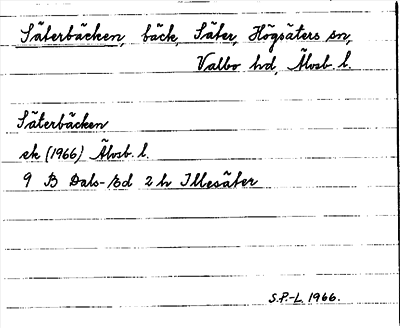 Säterbäcken, bäck, Säter, Högsäters sn,
Valbo hd, Älvsb. l.
Säterbäcken
ek (1966) Älvsb. l.
9 B Dals-Ed 2 h Illesäter
S.P.-L. 1966.